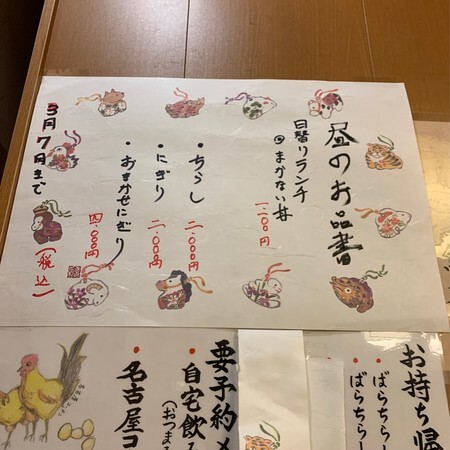 昼のお品書
日替りランチ
◎まかない丼
一.二〇〇円
・ちらし
二.〇〇〇円
・にぎり
二.〇〇〇円
・おまかせにぎり
四.〇〇〇円
3月7日まで
(税込)
お持ち帰
・ばらちらし
・ばらちらし
要予約メ
・自宅飲み
(おつまみ
・名古屋コ